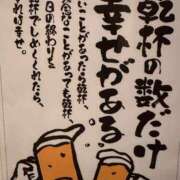 乾杯の数だけ
幸せがある。
いことがあったら乾杯、
なことがあっても乾杯、
日の終わりを
杯でしめくくれたら、
れは幸せ。